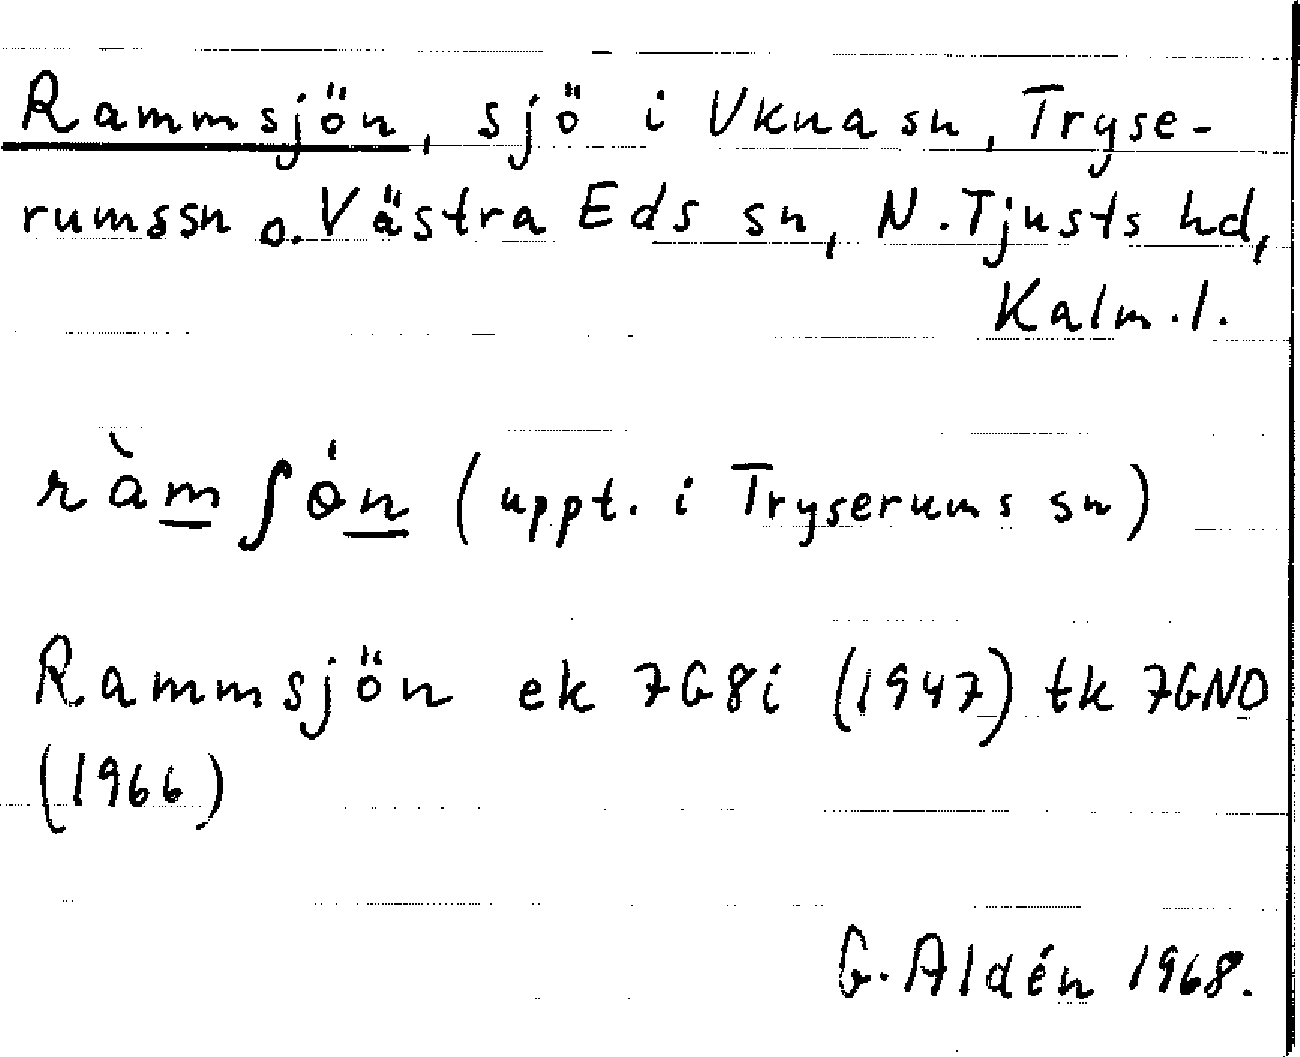 Rammsjön, sjö i Ukna sn, Tryse-
rums sn o. Västra Eds sn, N. Tjusts hd,
Kalm. l.
ràm̲ʃón̲ (uppt. i Tryserums sn)
Rammsjön ek 7G8i (1947) tk 7GNO
(1966)
G. Aldén 1968.